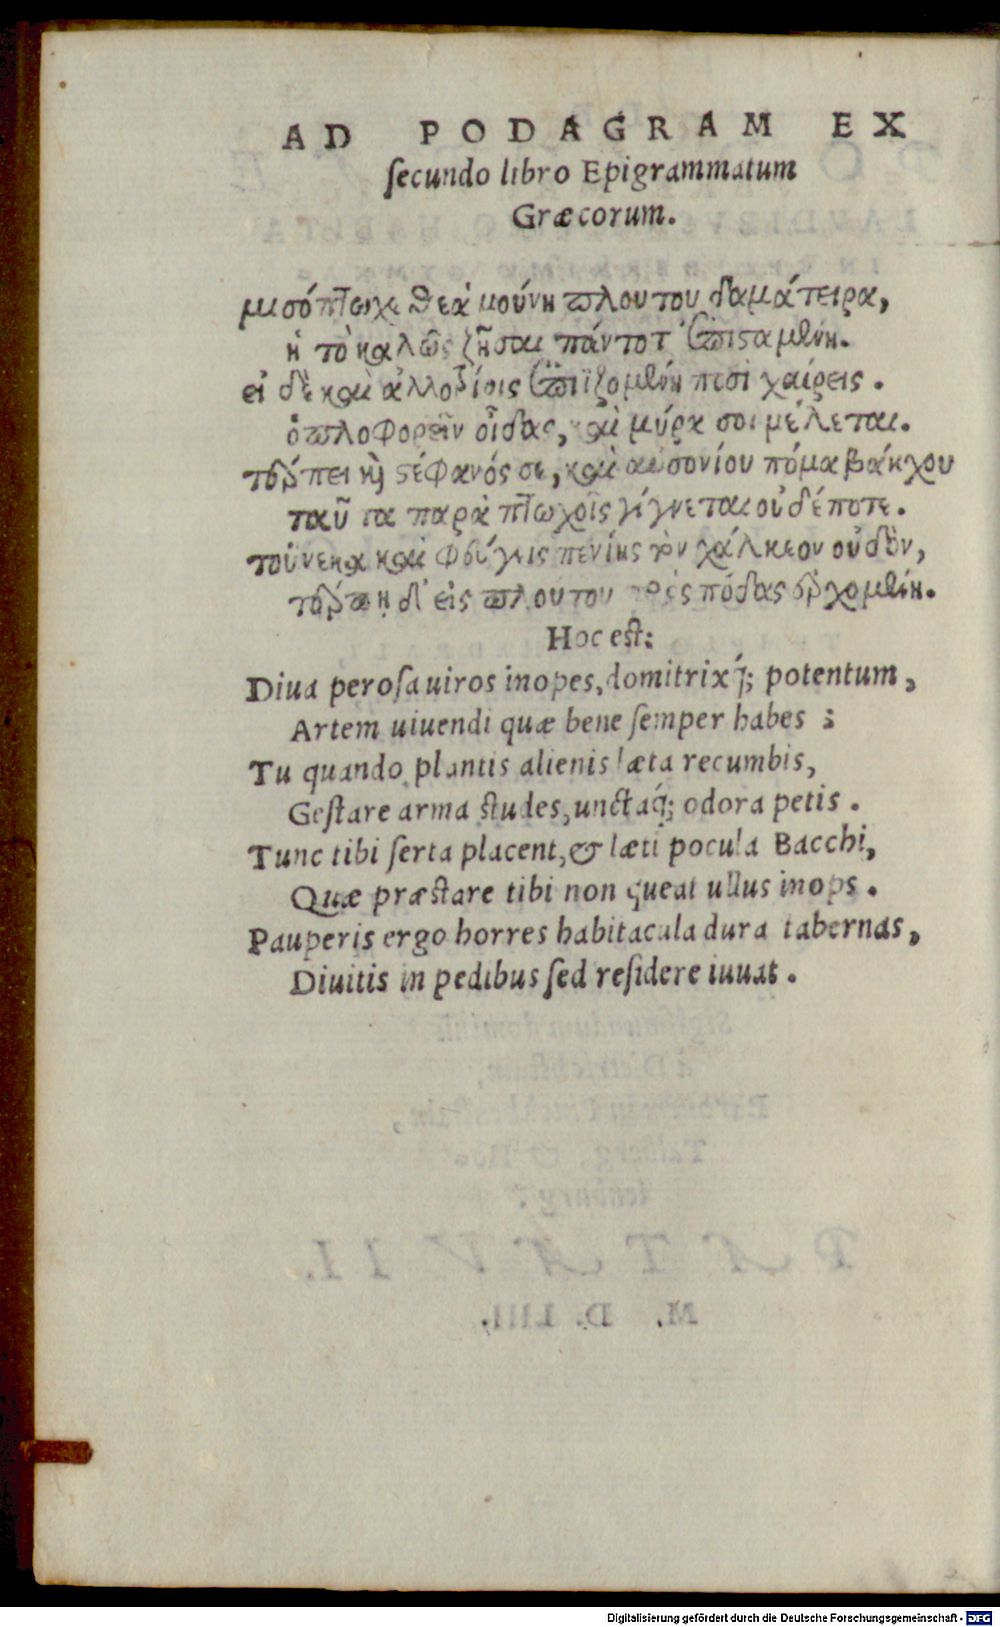 AD PODAGRAM EX
secundo libro Epigrammatum
Græcorum.
μισόπτωχε θεὰ μούνη πλούτου δαμάτειρα,
ἡ τὸ καλῶς ζῆσαι πάντοτ' ἐπισταμένη.
εἰ δὲ καὶ ἀλλοτρίοις ἐπιϊζομένη ποσὶ χαίρεις.
ὁπλοφορεῖν οἶδας, καὶ μύρα σοι μέλεται.
τέρπει καὶ στέφανός σε, καὶ αὐσονίου πόμα βάκχου
ταῦτα παρὰ πτωχοῖς γίγνεται οὐδέποτε.
τοὔνεκα καὶ φεύγεις πενίης τὸν χάλκεον οὐδὸν,
τέρπῃ δ' εἰς πλούτου πρὸς πόδας ἐρχομένη.
Hoc est:
Diua perosa uiros inopes, domitrixq́; potentum,
Artem uiuendi quæ bene semper habes :
Tu quando plantis alienis læta recumbis,
Gestare arma studes, unctaq́; odora petis.
Tunc tibi serta placent, & læti pocula Bacchi,
Quæ præstare tibi non queat ullus inops.
Pauperis ergo horres habitacula dura tabernas,
Diuitis in pedibus sed residere iuuat.
Digitalisierung gefördert durch die Deutsche Forschungsgemeinschaft - DFG